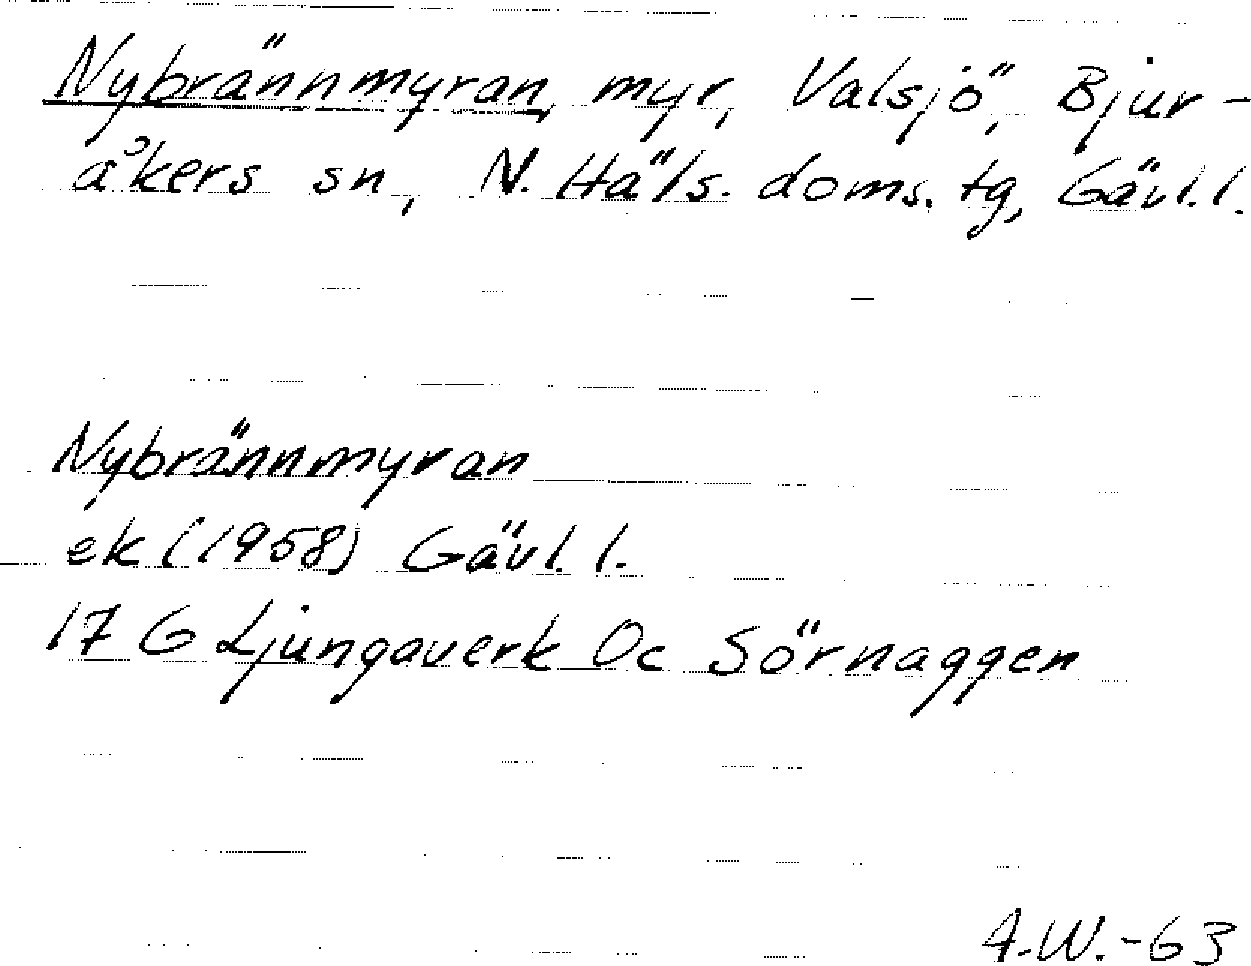 Nybrännmyran, myr, Valsjö, Bjur-
åkers sn, N. Häls. doms. tg, Gävl. l.
Nybrännmyran
ek (1958) Gävl. l.
17 G Ljungaverk Oc Sörnaggen
A.W.-63